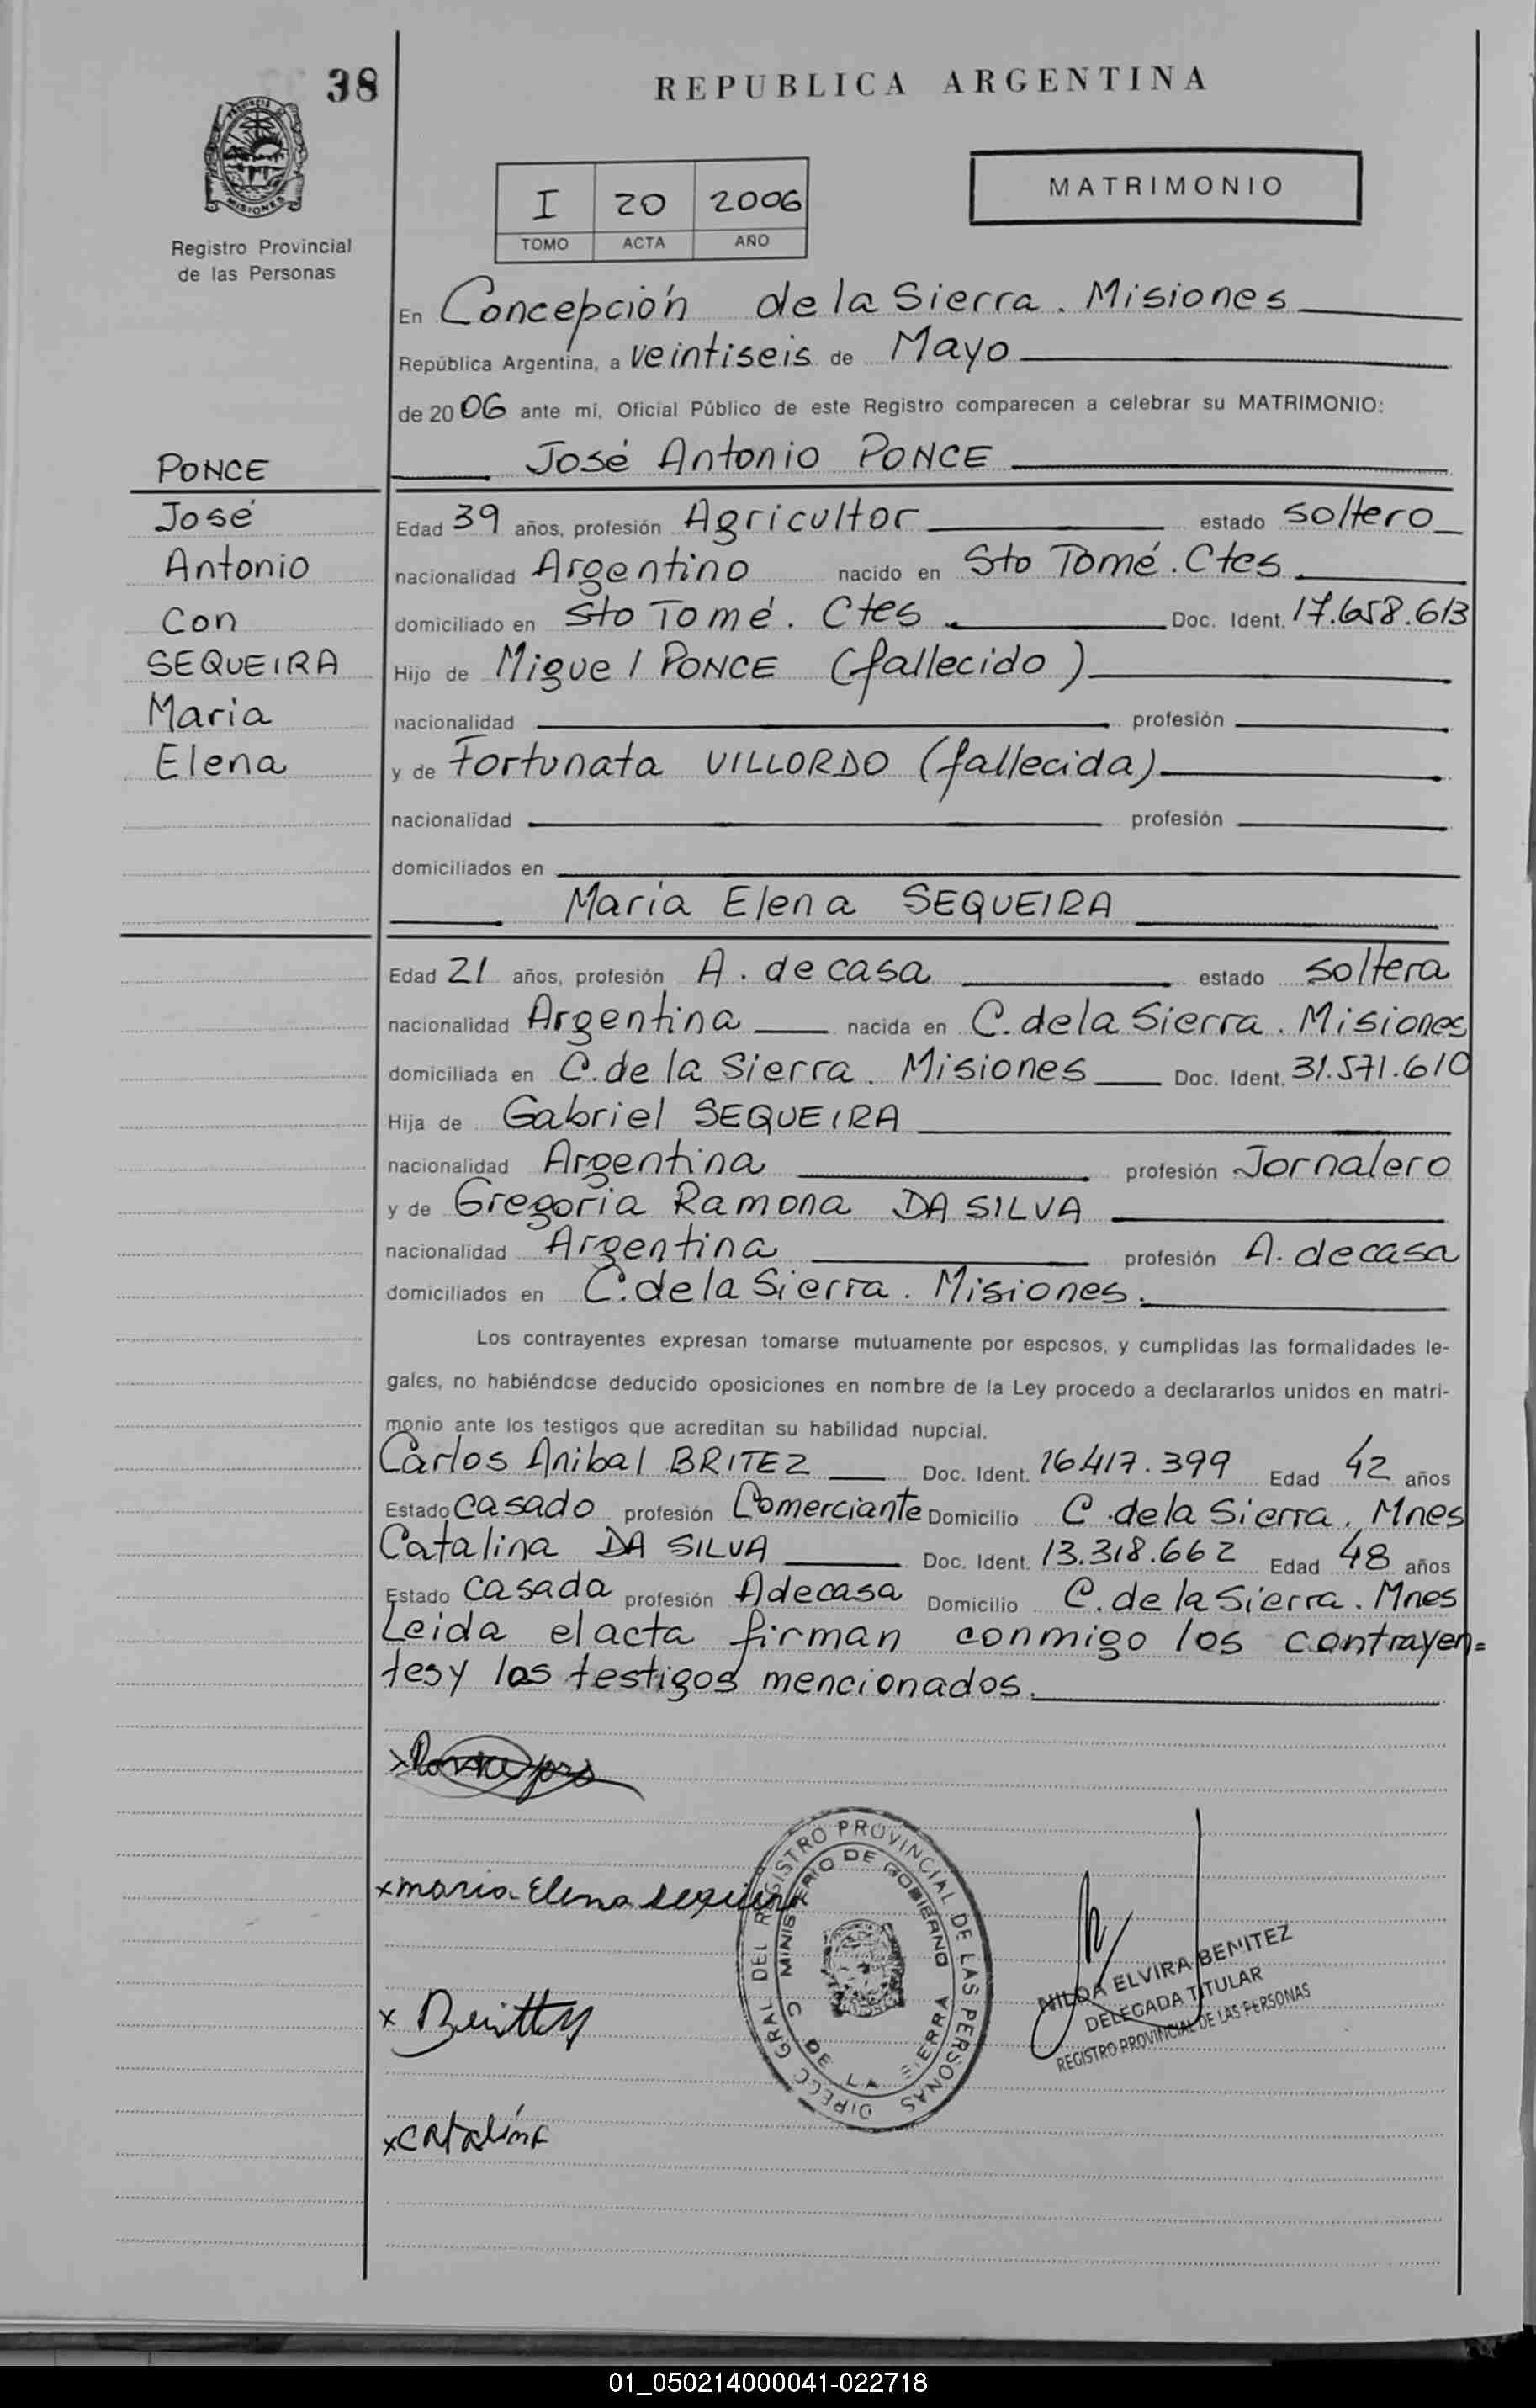 38
REPUBLICA ARGENTINA
I 20 2006
TOMO ACTA AÑO
MATRIMONIO
MISIONES
Registro Provincial
de las Personas
En Concepción de la Sierra. Misiones
República Argentina, a veintiseis de Mayo
de 2006 ante mí, Oficial Público de este Registro comparecen a celebrar su MATRIMONIO:
PONCE
José
Antonio
Con
SEQUEIRA
Maria
Elena
José Antonio PONCE
Edad 39 años, profesión Agricultor estado soltero
nacionalidad Argentino nacido en Sto Tomé. Ctes
domiciliado en Sto Tomé. Ctes Doc. Ident. 17.658.613
Hijo de Miguel PONCE (fallecido)
nacionalidad profesión
y de Fortunata VILLORDO (fallecida)
nacionalidad profesión
domiciliados en
Maria Elena SEQUEIRA
Edad 21 años, profesión A. de casa estado soltera
nacionalidad Argentina nacida en C. de la Sierra. Misiones
domiciliada en C. de la Sierra. Misiones Doc. Ident. 31.571.610
Hija de Gabriel SEQUEIRA
nacionalidad Argentina profesión Jornalero
y de Gregoria Ramona DA SILVA
nacionalidad Argentina profesión A. de casa
domiciliados en C. de la Sierra. Misiones.
Los contrayentes expresan tomarse mutuamente por esposos, y cumplidas las formalidades le-
gales, no habiéndose deducido oposiciones en nombre de la Ley procedo a declararlos unidos en matri-
monio ante los testigos que acreditan su habilidad nupcial.
Carlos Anibal BRITEZ Doc. Ident. 16.417.399 Edad 42 años
Estado casado profesión Comerciante Domicilio C. de la Sierra. Mnes
Catalina DA SILVA Doc. Ident. 13.318.662 Edad 48 años
Estado casada profesión A de casa Domicilio C. de la Sierra. Mnes
Leida el acta firman conmigo los contrayen=
tes y los testigos mencionados.
x
x maria Elena sequeira
x
x catalina
DIRECC GRAL DEL REGISTRO PROVINCIAL DE LAS PERSONAS
MINISTERIO DE GOBIERNO
C DE LA SIERRA
NILDA ELVIRA BENITEZ
DELEGADA TITULAR
REGISTRO PROVINCIAL DE LAS PERSONAS
01_050214000041-022718